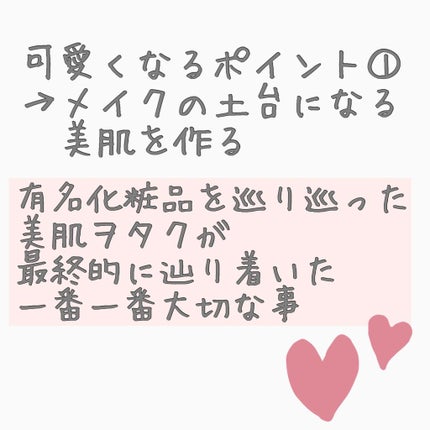 可愛くなるポイント①
→メイクの土台になる
美肌を作る
有名化粧品を巡り巡った
美肌ヲタクが
最終的に辿り着いた
一番一番大切な事